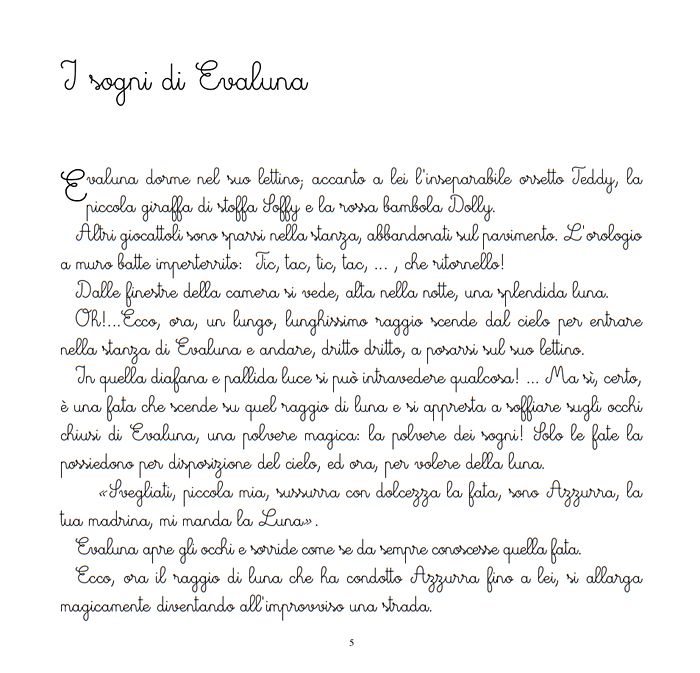 I sogni di Evaluna
Evaluna dorme nel suo lettino; accanto a lei l'inseparabile orsetto Teddy, la
piccola giraffa di stoffa Soffy e la rossa bambola Dolly.
Altri giocattoli sono sparsi nella stanza, abbandonati sul pavimento. L'orologio
a muro batte imperterrito: Tic, tac, tic, tac, ... , che ritornello!
Dalle finestre della camera si vede, alta nella notte, una splendida luna.
Oh!...Ecco, ora, un lungo, lunghissimo raggio scende dal cielo per entrare
nella stanza di Evaluna e andare, dritto dritto, a posarsi sul suo lettino.
In quella diafana e pallida luce si può intravedere qualcosa! ... Ma sì, certo,
è una fata che scende su quel raggio di luna e si appresta a soffiare sugli occhi
chiusi di Evaluna, una polvere magica: la polvere dei sogni! Solo le fate la
possiedono per disposizione del cielo, ed ora, per volere della luna.
«Svegliati, piccola mia, sussurra con dolcezza la fata, sono Azzurra, la
tua madrina, mi manda la Luna».
Evaluna apre gli occhi e sorride come se da sempre conoscesse quella fata.
Ecco, ora il raggio di luna che ha condotto Azzurra fino a lei, si allarga
magicamente diventando all'improvviso una strada.
5